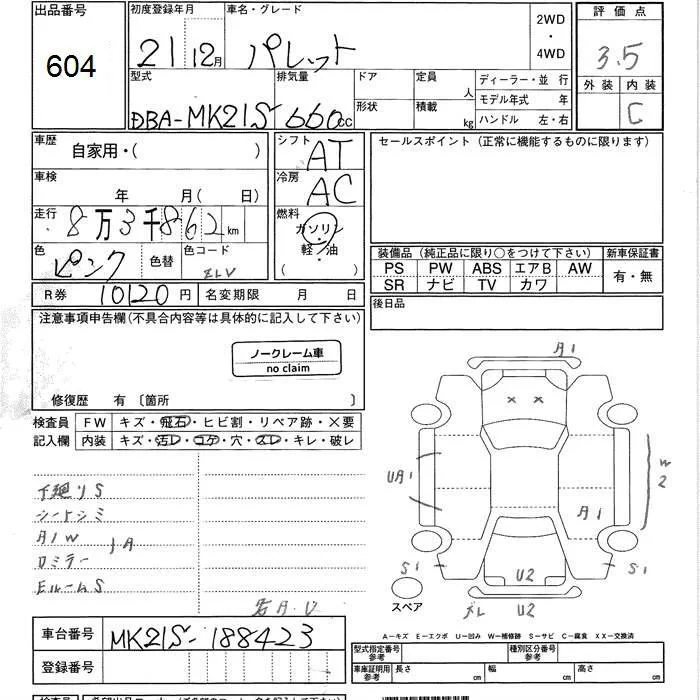 出品番号 604
初度登録年月 21 12月
車名・グレード パレット
2WD・4WD
評価点 3.5
外装 内装 C
型式 DBA-MK21S
排気量 660cc
ドア
形状
定員 人
積載 kg
ディーラー・並行
モデル年式 年
ハンドル 左・右
車歴 自家用・( )
シフト AT
セールスポイント (正常に機能するものに限ります)
車検 年 月( 日)
冷房 AC
走行 8万3千862km
燃料 ガソリン・軽・油 ( )
色 ピンク 色替 色コード ZLV
装備品 (純正品に限り○をつけて下さい) 新車保証書
PS PW ABS エアB AW 有・無
SR ナビ TV カワ
R券 10120円 名変期限 月 日
後日品
注意事項申告欄(不具合内容等は具体的に記入して下さい)
ノークレーム車
no claim
修復歴 有 〔箇所 〕
検査員 FW キズ・飛石・ヒビ割・リペア跡・×要
記入欄 内装 キズ・汚レ・コゲ・穴・スレ・キレ・破レ
下廻りS
シートシミ
A1W
ロミラー
EルームS
A1
UA1
W2
A1
S1
S1
U2
U2
スペア
A-キズ E-エクボ U-凹み W-補修跡 S-サビ C-腐食 XX-交換済
車台番号 MK21S-188423
型式指定番号 参考
種別区分番号 参考
登録番号
車庫証明用 参考 長さ cm 幅 cm 高さ cm